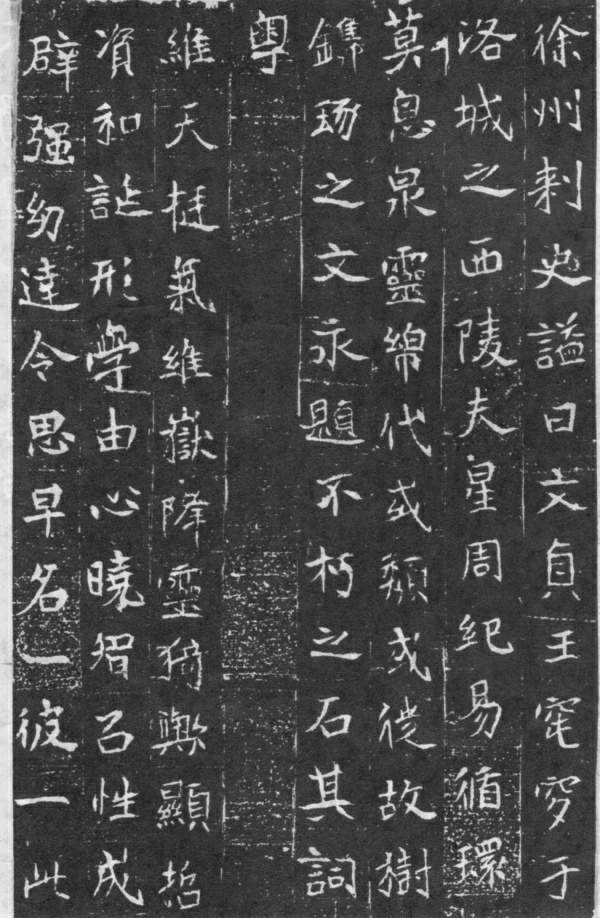 徐州刾史謚曰文貞王窀穸于
洛城之西陵夫星周紀易循環
莫息泉靈綿代或頹或徙故樹
鐫琢之文永題不朽之石其詞
粵
維天挺氣維嶽降靈猗歟顯哲
資和誕形學由心曉智㠯性成
辟强幼達令思早名一彼一此